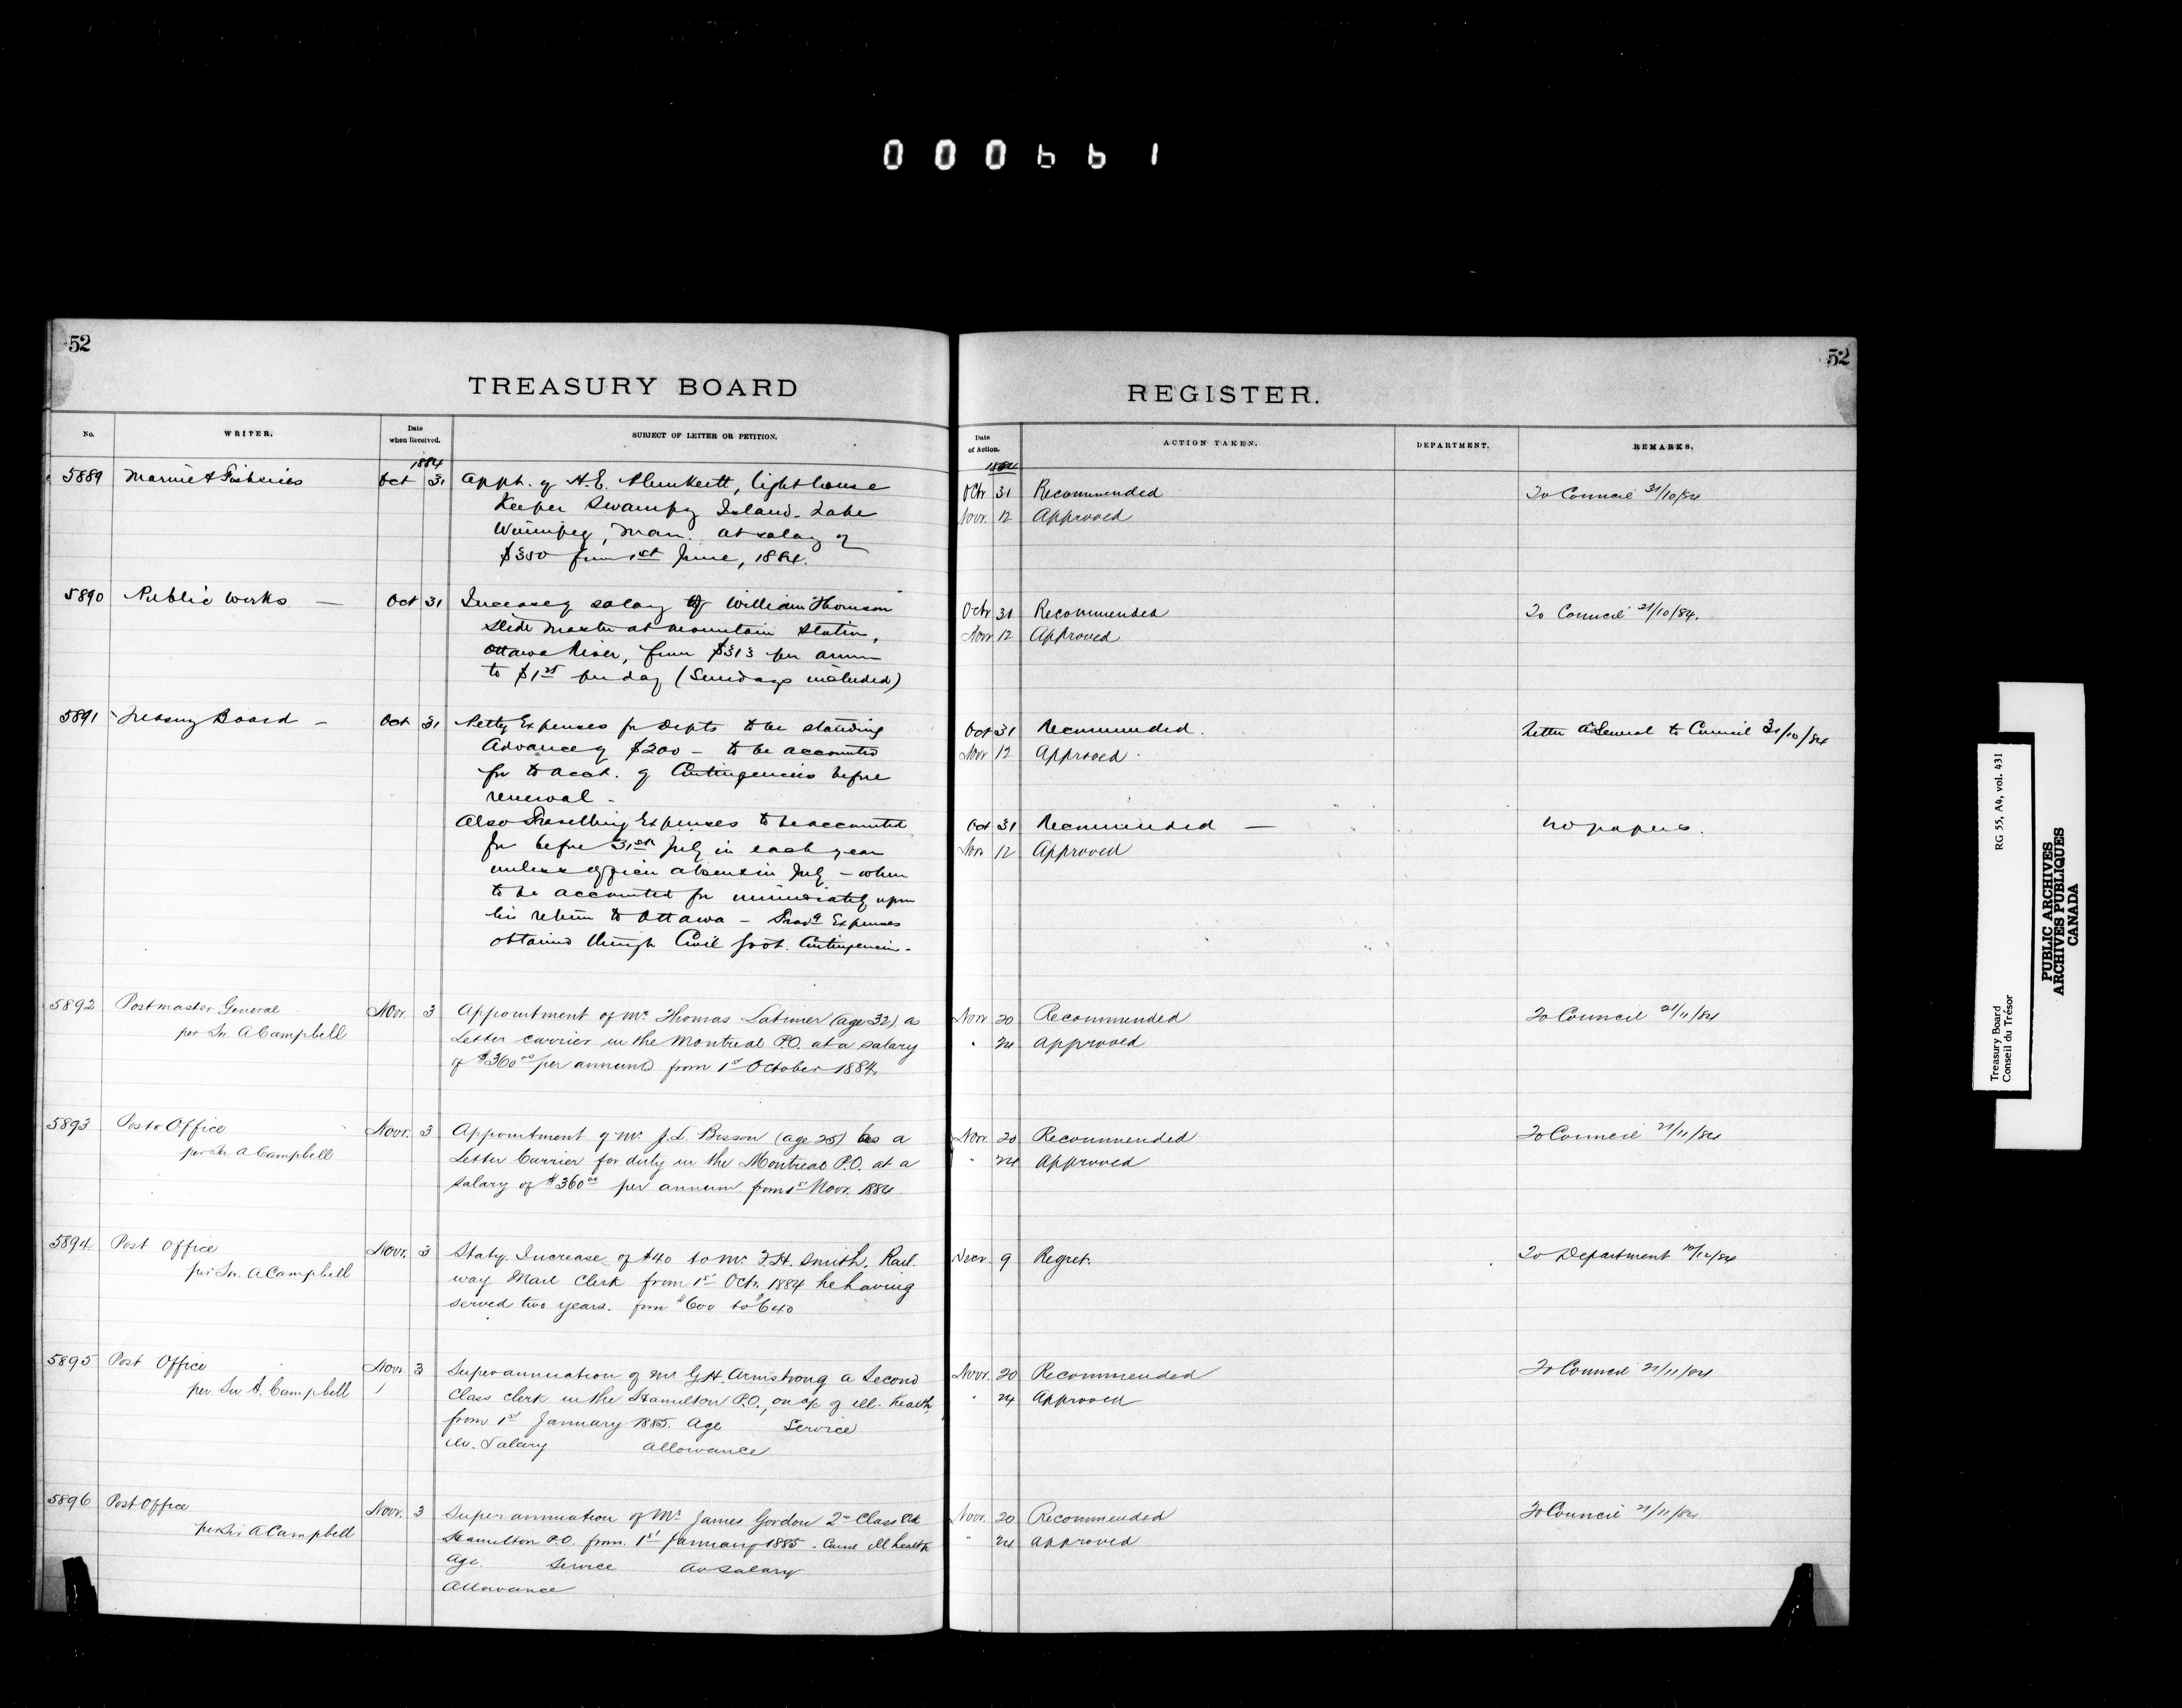 000661
52
52
TREASURY BOARD
REGISTER.
No.
WRITER.
Date
when Received.
SUBJECT OF LETTER OR PETITION.
Date
of Action.
ACTION TAKEN.
DEPARTMENT.
REMARKS.
1884
1884
5889 Marine & Fisheries Oct 31 Appt. of H.E. Plunkett, lighthouse
Keeper Swampy Island. Lake
Winnipeg, Man. at salary of
$350 from 1st June, 1884.
Octr 31 Recommended To Council 31/10/84
Novr. 12 Approved
5890 Public Works — Oct 31 Increase of salary of William Thomson
Slide Master at Mountain Station,
Ottawa River, from $313 per annum
to $1 25 per day (Sundays included)
Octr 31 Recommended To Council 31/10/84.
Novr 12 Approved
5891 Treasury Board — Oct 31 Petty Expenses for Depts to be standing
Advance of $200 — to be accounted
for to acct. of Contingencies before
renewal —
Oct 31 Recommended. Letter to Council 31/10/84
Novr 12 Approved
Also Travelling Expenses to be accounted
for before 31st July in each year
unless officer absent in July — when
to be accounted for immediately upon
his return to Ottawa — Travg Expenses
obtained through Civil Govt. Contingencies.
Oct 31 Recommended — No papers.
Nov 12 Approved
5892 Postmaster General Novr. 3 Appointment of Mr. Thomas Latimer (age 32) as
per Sir A Campbell Letter carrier in the Montreal P.O. at a salary
of $360 00 per annum from 1st October 1884.
Novr 20 Recommended To Council 21/11/84
" 24 approved
5893 Post Office Novr. 3 Appointment of Mr. J.L. Bisson (age 25) as a
per Sir A Campbell Letter Carrier for duty in the Montreal P.O. at a
salary of $360 00 per annum from 1st Novr. 1884
Novr. 20 Recommended To Council 21/11/84
" 24 Approved
5894 Post Office Novr. 3 Staty. Increase of $40 to Mr F.H. Smith, Rail.
per Sir A Campbell way Mail Clerk from 1st Octr. 1884 he having
served two years. from $600 to $640
Decr. 9 Regret. To Department 10/12/84
5895 Post Office Novr. 3 Superannuation of Mr G.H. Armstrong a Second
per Sir A. Campbell Class clerk in the Hamilton P.O., on a/c of ill. health,
from 1st January 1885. Age Service
Av. Salary Allowance
Novr. 20 Recommended To Council 21/11/84
" 24 Approved
5896 Post Office Novr. 3 Superannuation of Mr. James Gordon 2nd Class Clk
per Sir A Campbell Hamilton P.O. from 1st January 1885. Cause ill health
Age Service Av Salary
Allowance
Novr. 20 Recommended To Council 21/11/84
" 24 approved
Treasury Board
Conseil du Trésor
RG 55, A4, vol. 431
PUBLIC ARCHIVES
ARCHIVES PUBLIQUES
CANADA